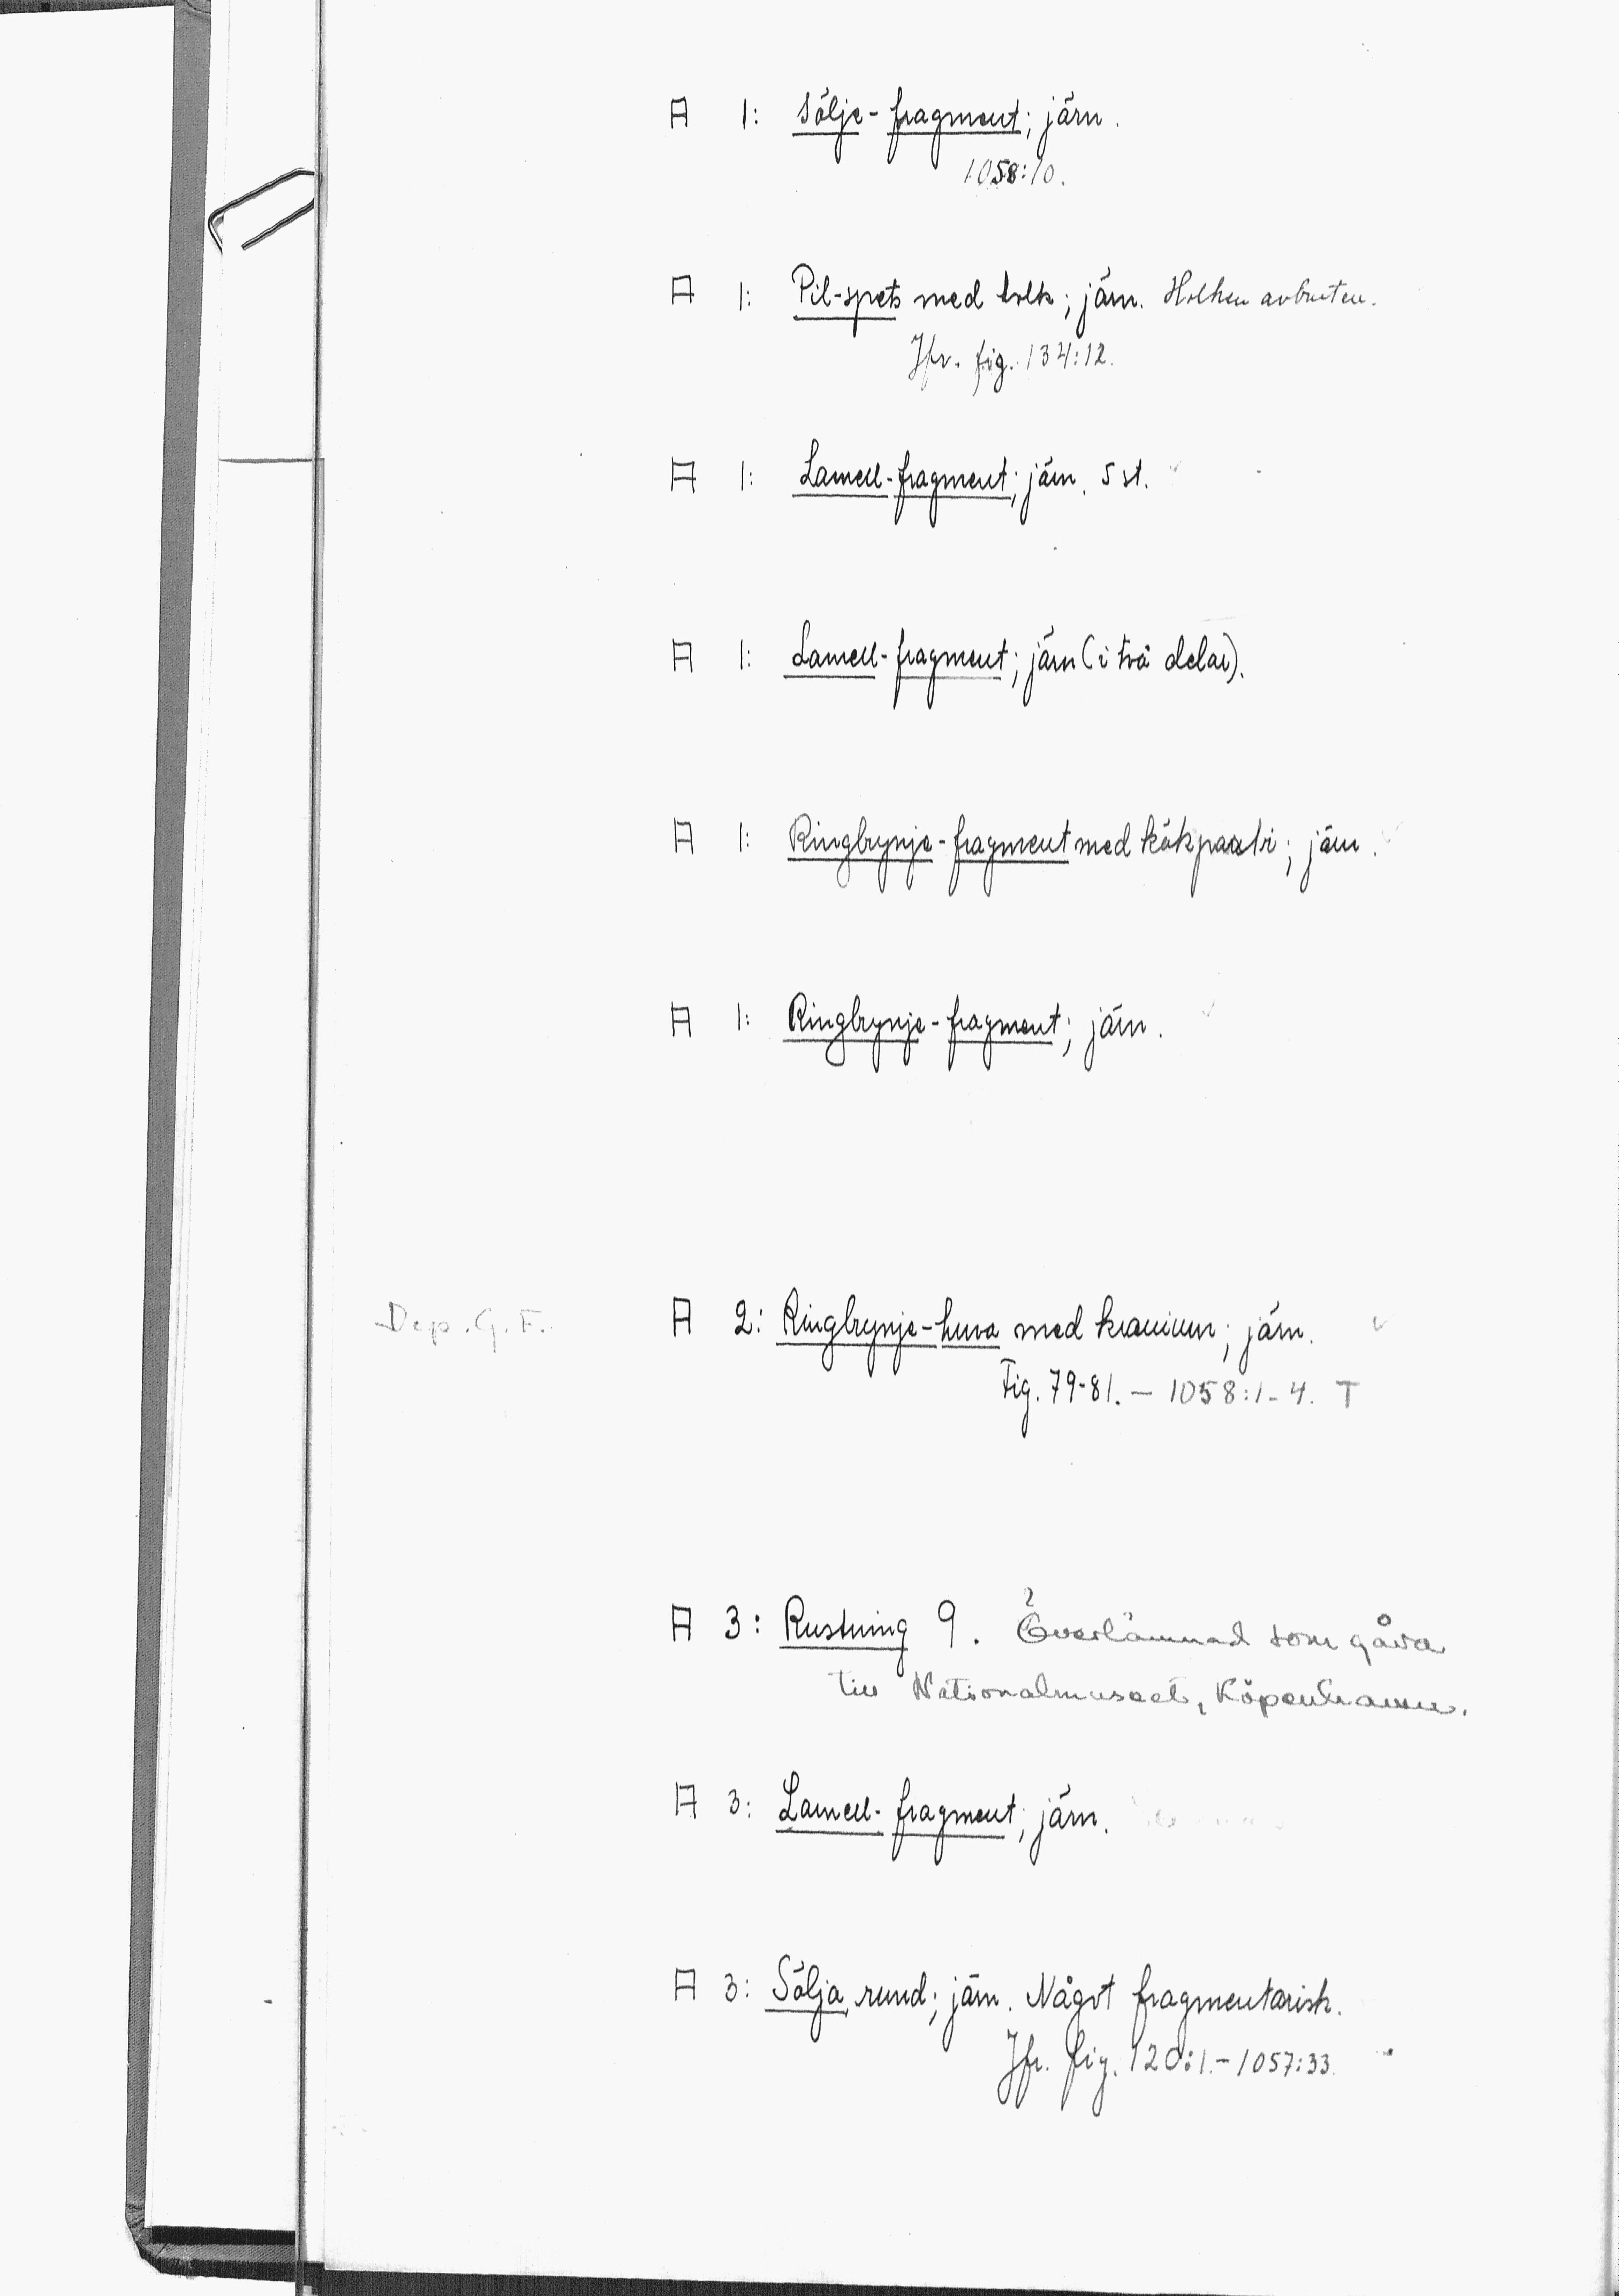 A 1: Sölje-fragment; järn.
1058:10.
A 1: Pil-spets med holk; järn. Holken avbruten.
Jfr. fig. 134:12.
A 1: Lamell-fragment; järn. 5 st.
A 1: Lamell-fragment; järn (i två delar).
A 1: Ringbrynje-fragment med käkparti; järn.
A 1: Ringbrynje-fragment; järn.
Dep. G. F. A 2: Ringbrynje-huva med kranium; järn.
Fig. 79-81. - 1058:1-4. T
A 3: Rustning 9. ? Överlämnad som gåva
till Nationalmuseet, Köpenhamn.
A 3: Lamell-fragment; järn.
A 3: Sölja, rund; järn. Något fragmentarisk.
Jfr. fig. 120:1. - 1057:33